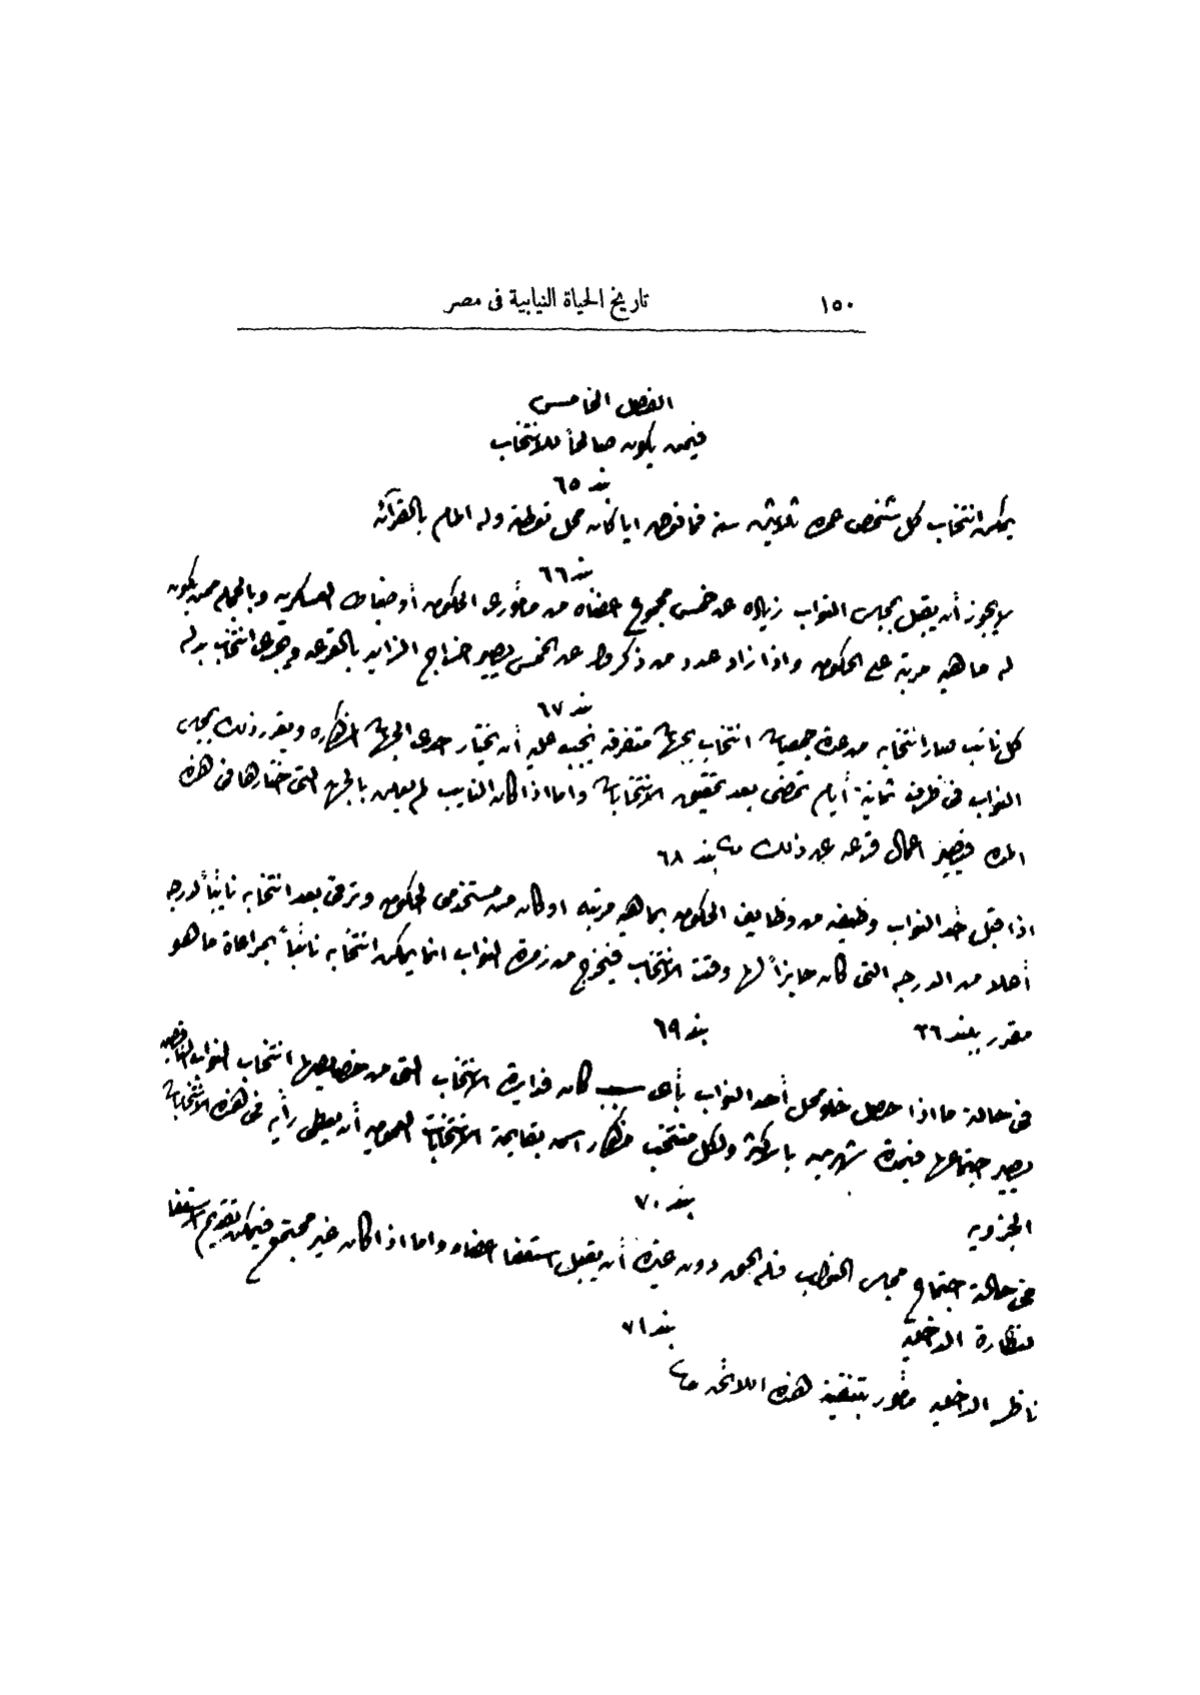 ١٥٠ تاريخ الحياة النيابية فى مصر
الفصل الخامس
فيمن يكون صالحاً للانتخاب
بند ٦٥
يمكن انتخاب كل شخص عمره ثلاثين سنه فما فوق ايا كان محل توطنه وله المام بالقرآئه
بند ٦٦
لا يجوز أن يقبل بمجلس النواب زياده عن خمس مجموع اعضاه من مأمورى الحكومه أو ضباط العسكريه وبالجمله ممن يكون
له ماهيه مرتبه على الحكومه واذا زاد عدد من ذكروا عن الخمس يصير اخراج الزايد بالقرعه ويجرى انتخاب بدله
بند ٦٧
كل نائب صار انتخابه من عدة جمعيات انتخاب بجهات متفرقه يجب عليه أن يختار احدى الجهات المذكوره ويقرر ذلك بمجلس
النواب فى ظرف ثمانية أيام تمضى بعد تحقيق الانتخابات واما اذا كان النايب لم يعلن بالجهه التى اختارها فى هذه
المده فيصير اعمال قرعه عن ذلك بند ٦٨
اذا قبل احد النواب وظيفه من وظايف الحكومه بماهيه مرتبه او كان من مستخدمى الحكومه وترقى بعد انتخابه نائباً لدرجه
أعلا من الدرجه التى كان حايزاً لها وقت الانتخاب فيخرج من زمرة النواب انما يمكن انتخابه نائباً بمراعاة ما هو
مقرر ببند ٣٦ بند ٦٩
فى حالة ما اذا حصل خلو محل أحد النواب بأى سبب كان فدايرة الانتخاب التى من خصايصها انتخاب النواب الناقصين
يصير اجتماعها فيمدة شهرين بالاكثر ولكل منتخب مذكور اسمه بقايمة الانتخابات العموميه أن يعطى رأيه فى هذه الانتخابات
الجزويه
بند ٧٠
فى حالة اجتماع مجلس النواب فله الحق دون غيره أن يقبل استعفا اعضاه واما اذا كان غير مجتمع فيمكن تقديم الاستعفا
لنظارة الداخليه
بند ٧١
ناظر الداخليه مأمور بتنفيذ هذه اللائحه